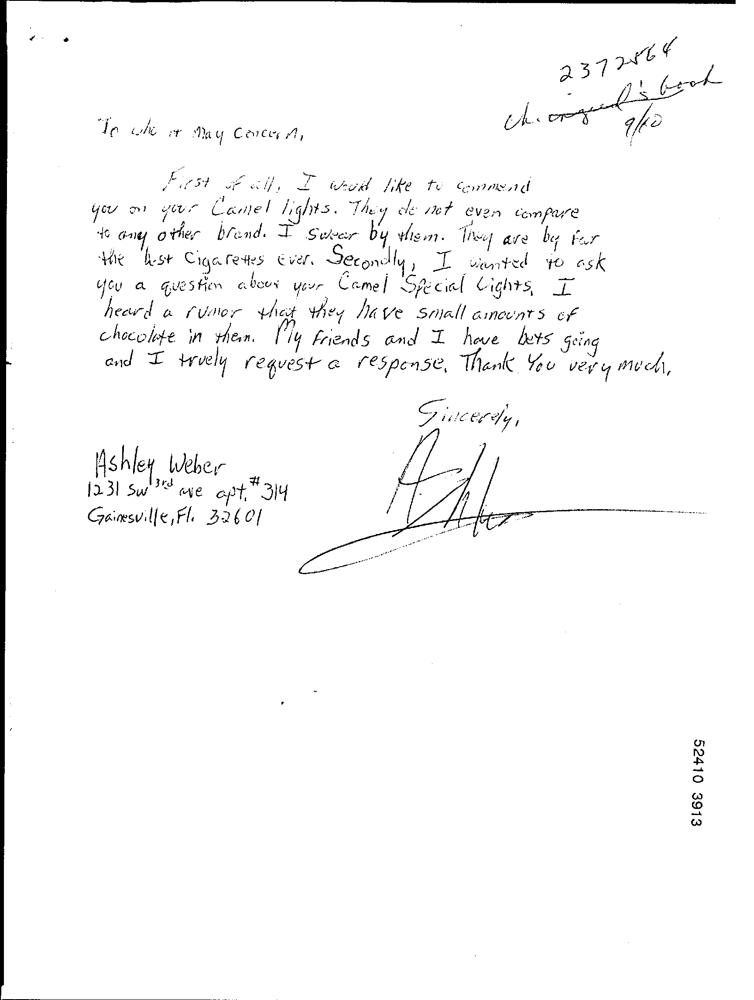 2372864
book
9/10
To who it May Concern,
First of all, I would like to commend
you on your Camel lights. They do not even compare
to any other brand. I swear by them. They are by far
the best Cigarettes ever. Secondly, I wanted to ask
you a question about your Camel Special Lights, I
heard a rumor that they have small amounts of
chocolate in them. My friends and I have bets going
and I truely request a response. Thank You very much,
Sincerely,
Ashley Weber
1231 SW 3rd ave apt. #314
Gainesville, Fl. 32601
52410 3913